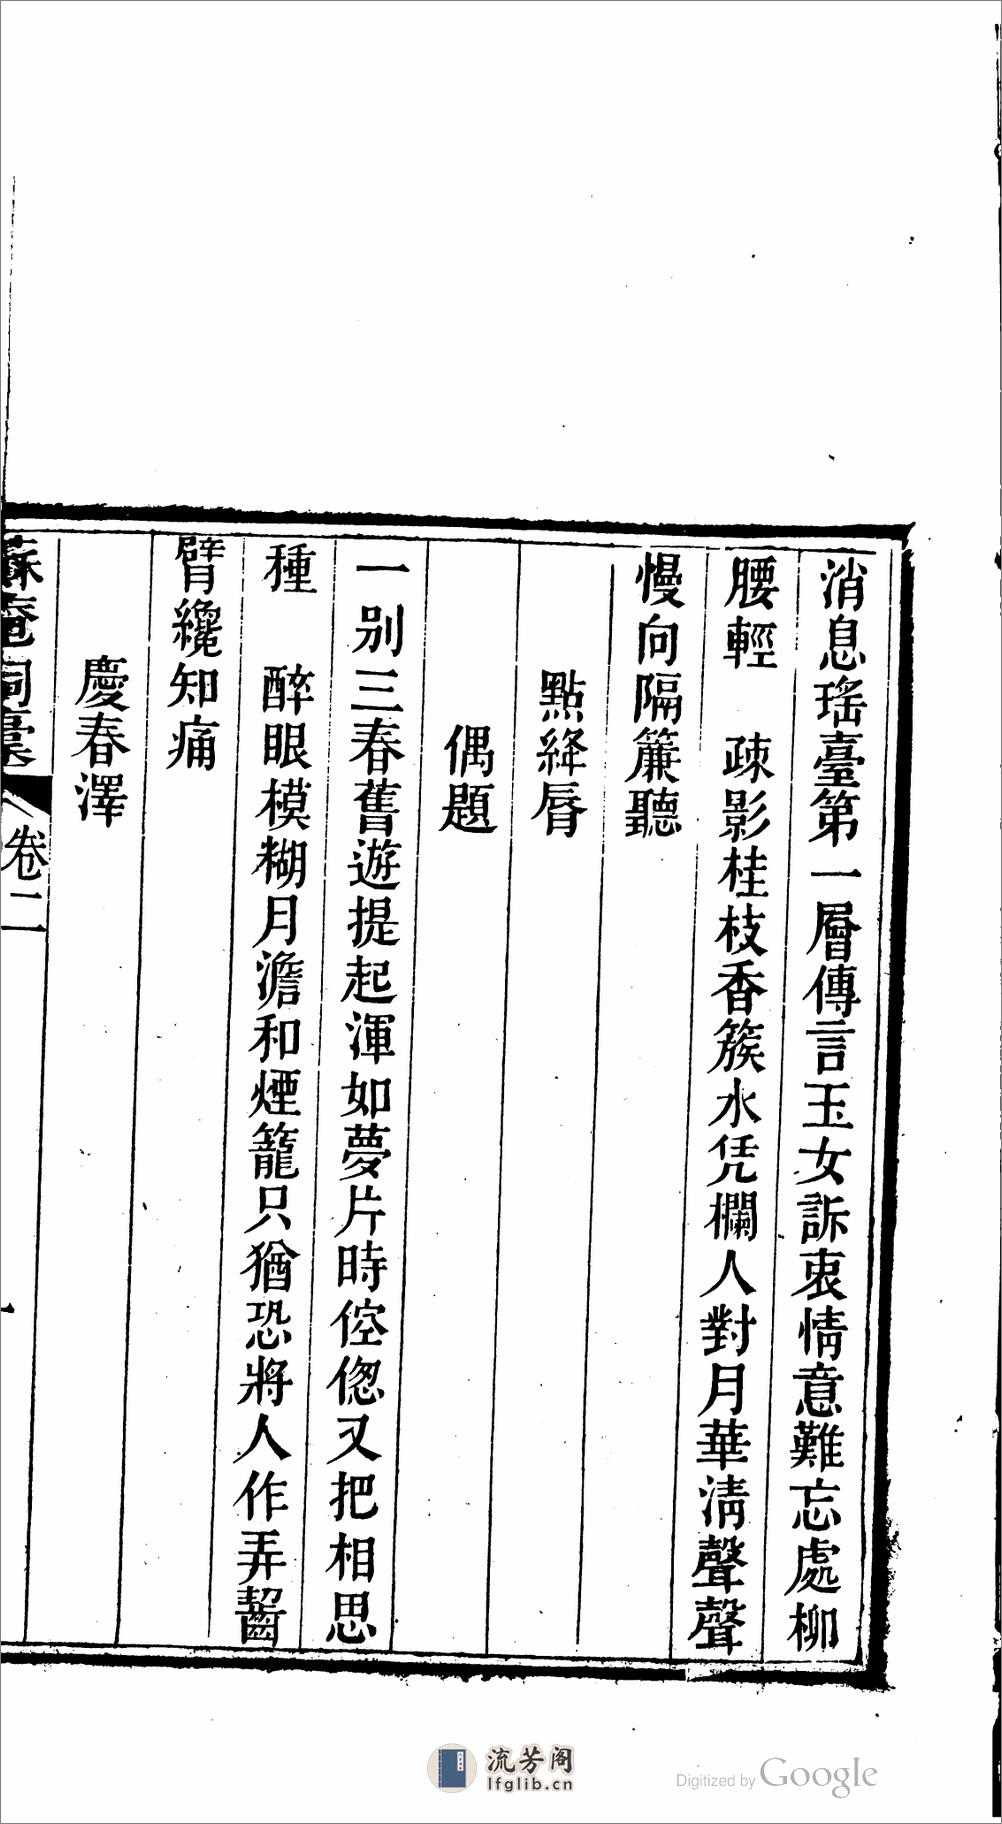 消息瑤臺第一層傳言玉女訴衷情意難忘處柳
腰輕　疎影桂枝香簇水凭欄人對月華淸聲聲
慢向隔簾聽
點絳唇
偶題
一別三春舊遊提起渾如夢片時倥偬又把相思
種　醉眼模糊月澹和煙籠只猶恐將人作弄齧
臂纔知痛
慶春澤
蘇庵詞藁
卷二
流芳阁
lfglib.cn
Digitized by Google